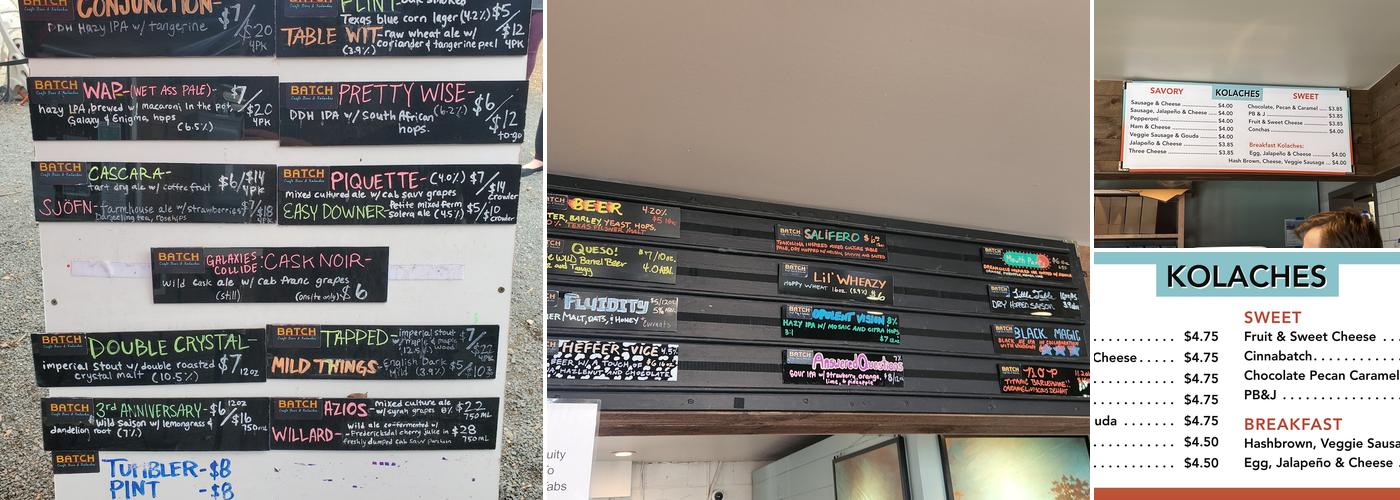 BATCH
Craft Beer & Kolaches
CONJUNCTION-
DDH Hazy IPA w/ tangerine
$7/$20
4PK
Texas blue corn lager (4.2%) $5
TABLE WIT-raw wheat ale w/
(3.9%) coriander & tangerine peel
$12
4PK
BATCH
Craft Beer & Kolaches
WAP-(WET ASS PALE)- $7/$20
4PK
hazy IPA, brewed w/ macaroni in the pot,
Galaxy & Enigma hops
(6.5%)
BATCH
Craft Beer & Kolaches
PRETTY WISE-
(6.2%)
DDH IPA w/ South African
hops.
$6/$12
to-go
BATCH
Craft Beer & Kolaches
CASCARA-
tart dry ale w/ coffee fruit
$6/$14
4PK
SJÖFN-farmhouse ale w/ strawberries
Darjeeling tea, rosehips
$7/$18
4PK
BATCH
PIQUETTE-(4.0%) $7/$14
crowler
mixed cultured ale w/ cab sauv grapes
EASY DOWNER-Petite mixed ferm
solera ale (4.5%)
$5/$10
crowler
BATCH
Craft Beer & Kolaches
GALAXIES COLLIDE: CASK NOIR-
Wild cask ale w/ cab franc grapes
(still) (onsite only) $6
BATCH
Craft Beer & Kolaches
DOUBLE CRYSTAL-
imperial stout w/ double roasted
crystal malt (10.5%)
$7
12oz
BATCH
Craft Beer & Kolaches
TAPPED-imperial stout
w/ maple & maple
(12.5%)
$7
MILD THINGS-English Dark
Mild (3.9%)
$5
BATCH
Craft Beer & Kolaches
3rd ANNIVERSARY-$6 12oz
$16
750mL
Wild Saison w/ lemongrass &
dandelion root (7%)
BATCH
Craft Beer & Kolaches
AZIOS-mixed culture ale
w/ syrah grapes 8%
$22
750 mL
WILLARD-wild ale co-fermented w/
Fredericksdal cherry juice in
freshly dumped cab sauv puncheon
$28
750 mL
BATCH
Craft Beer & Kolaches
TUMBLER-$8
PINT -$8
BEER
4.20%
BARLEY, YEAST, HOPS,
TEXAS PILSNER MALT.
QUESO!
Barrel Beer
and Tangy
$7/10oz.
4.0 ABV.
FLUIDITY
MALT, OATS, & HONEY
HEFFER-VICE 4.5%
HAZELNUT AND CHOCOLATE
BATCH
SALÍFERO
BATCH
Lil' WHEAZY
HOPPY WHEAT 16oz.
$6
BATCH
OPULENT VISION 8%
HAZY IPA w/ MOSAIC AND CITRA HOPS
$7 12oz
BATCH
AnsweredQuestions
SOUR IPA w/ strawberry, orange,
lime, & pineapple
BATCH
Mouth Party
BATCH
Little Table
DRY HOPPED SAISON
BATCH
BLACK MAGIC
BATCH
uity
To
Tabs
SAVORY
Sausage & Cheese ........ $4.00
Sausage, Jalapeño & Cheese .... $4.00
Pepperoni ........ $4.00
Ham & Cheese ........ $4.00
Veggie Sausage & Gouda .... $4.00
Jalapeño & Cheese ........ $3.85
Three Cheese ........ $3.85
KOLACHES
SWEET
Chocolate, Pecan & Caramel .... $3.85
PB & J ........ $3.85
Fruit & Sweet Cheese ........ $3.85
Conchas ........ $4.00
Breakfast Kolaches:
Egg, Jalapeño & Cheese .... $4.00
Hash Brown, Cheese, Veggie Sausage ... $4.00
KOLACHES
.......... $4.75
Cheese..... $4.75
.......... $4.75
.......... $4.75
uda ...... $4.75
.......... $4.50
.......... $4.50
SWEET
Fruit & Sweet Cheese ...
Cinnabatch............
Chocolate Pecan Caramel
PB&J ...............
BREAKFAST
Hashbrown, Veggie Sausa
Egg, Jalapeño & Cheese .